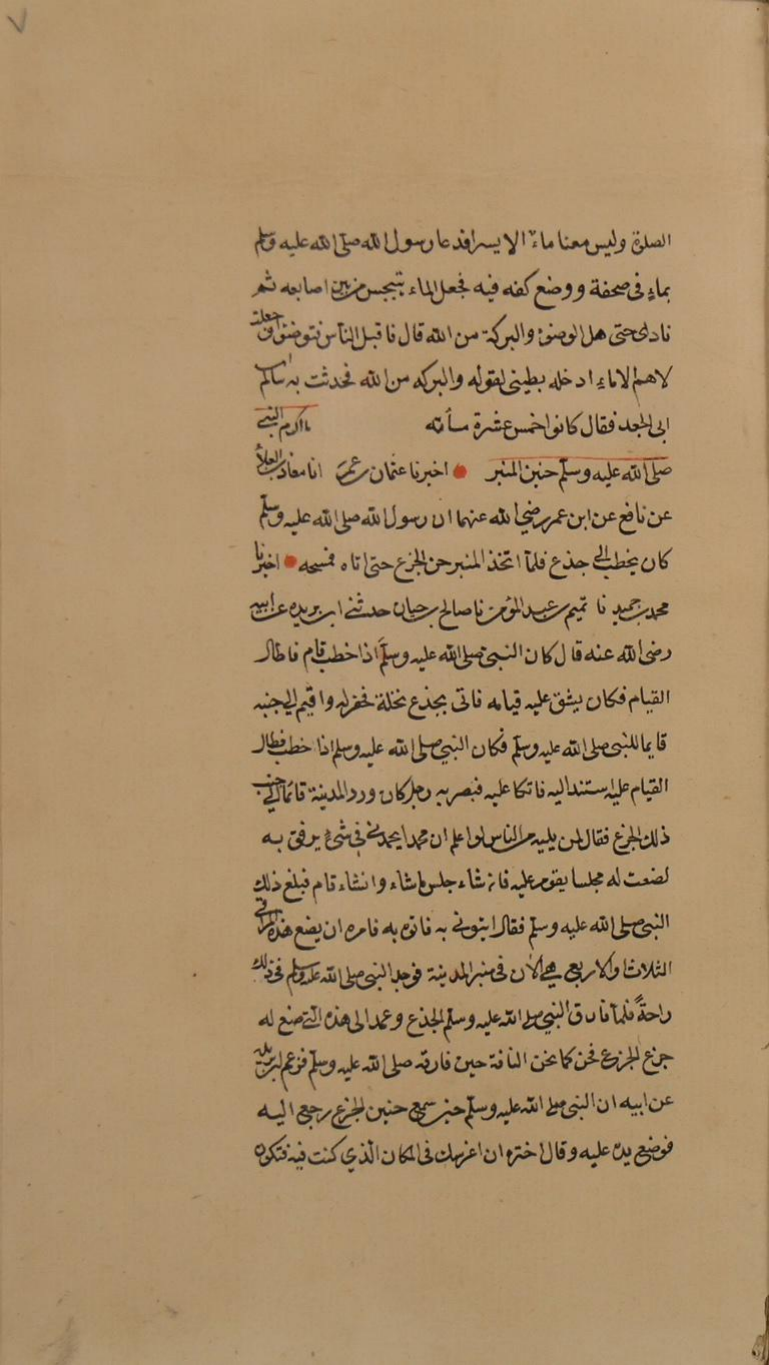 الصلوة وليس معنا ماء الا يسير افدعا رسول الله صلى الله عليه وسلم
بماء فى صحفة ووضع كفه فيه فجعل الماء يتبجس من بين اصابعه ثم
نادى حتى هل الوضوء والبركة من الله قال فاقبل الناس فتوضؤا وجعلت
لاهم الا ما ادخله بطينى لقوله والبركه من الله فحدثت به سالم
ابى الجعد فقال كانوا خمس عشرة مأنه ما اكرم النبي
صلى الله عليه وسلم حنين المنبر اخبرنا عثمان بن عمر انا معاذ بن العلاء
عن نافع عن ابن عمر رضي الله عنهما ان رسول الله صلى الله عليه وسلم
كان يخطب الى جذع فلما اتخذ المنبر حن الجزع حتى اتاه فمسحه اخبرنا
محمد بن حميد نا تميم بن عبد المؤمن نا صالح بن حيان حدثنى ابن بريده عن ابيه
رضى الله عنه قال كان النبى صلى الله عليه وسلم اذا خطب قام فاطال
القيام فكان يشق عليه قيامه فاتى بجذع نخلة فحفر له واقيم الى جنبه
قايما للنبى صلى الله عليه وسلم فكان النبي صلى الله عليه وسلم اذا خطب فطال
القيام عليه استند اليه فاتكا عليه فبصر به رجل كان ورد المدينة قائما الى جنب
ذلك الجزع فقال لمن يليه من الناس لو اعلم ان محمدا يحمدنى فى شئ يرفق به
لصنعت له مجلسا يقوم عليه فان شاء جلس ما شاء وان شاء قام فبلغ ذلك
النبى صلى الله عليه وسلم فقال ايتونى به فاتوه به فامره ان يضع هذه المراقى
الثلاث او الاربع هى الآن فى منبر المدينة فوجد النبى صلى الله عليه وسلم فى ذلك
راحة فلما فارق النبي صلى الله عليه وسلم الجذع وعمد الى هذه التى صنع له
جزع الجزع فحن كما تحن الناقة حين فارقه صلى الله عليه وسلم فزعم ابن بريده
عن ابيه ان النبى صلى الله عليه وسلم حين سمع حنين الجزع رجع اليه
فوضع يده عليه وقال اختره ان اغرسك فى المكان الذي كنت فيه فتكون